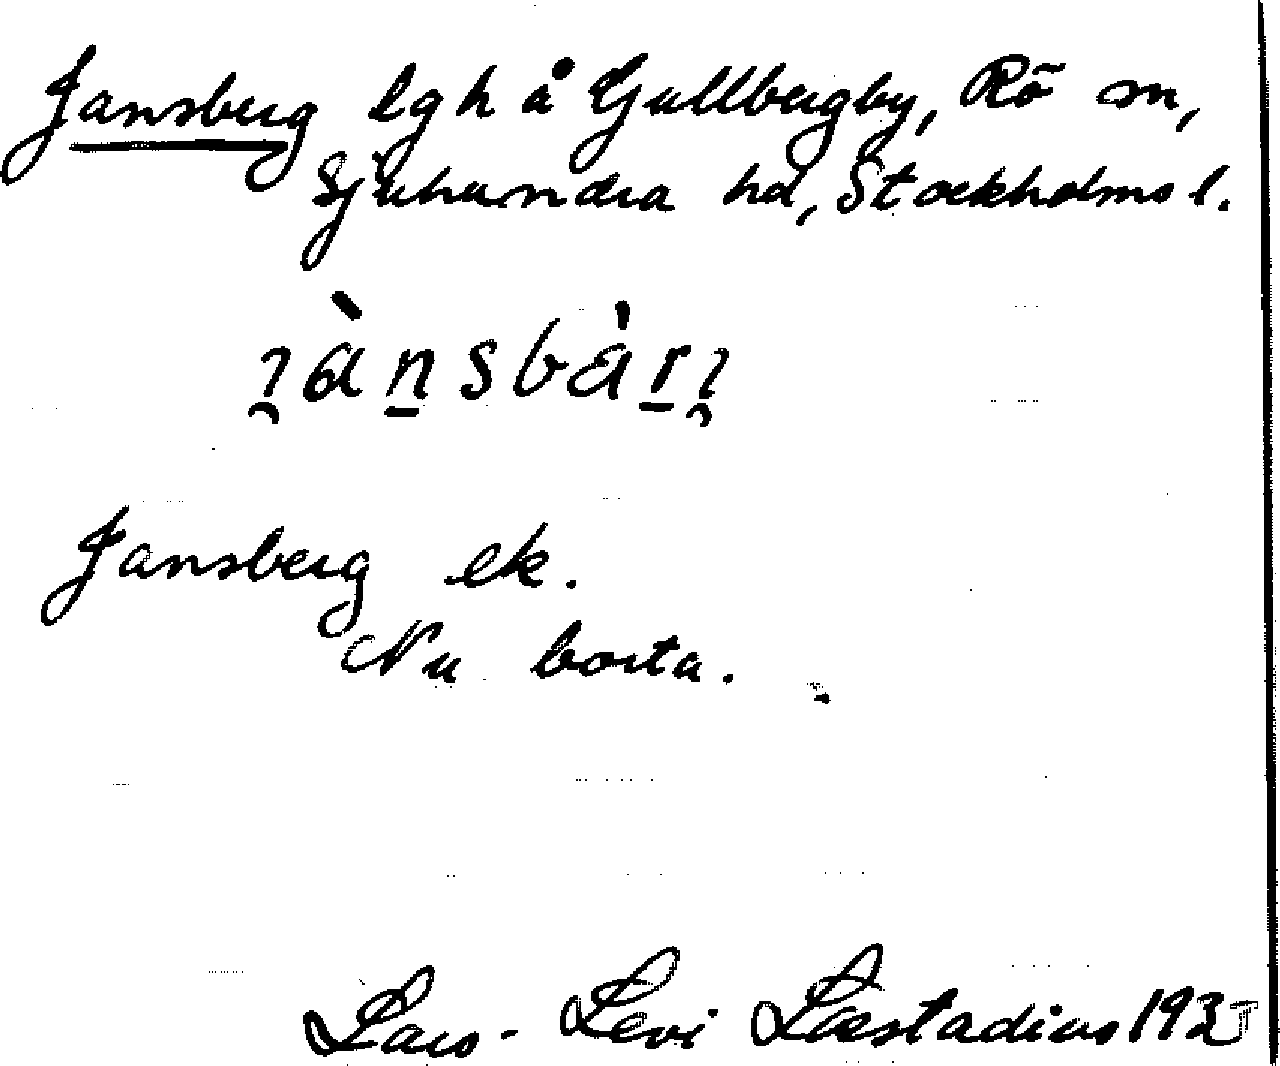 Jansberg lgh å Gullbergby, Rö sn,
Sjuhundra hd, Stockholms l.
Jansberg ek.
Nu borta.
Lars-Levi Læstadius